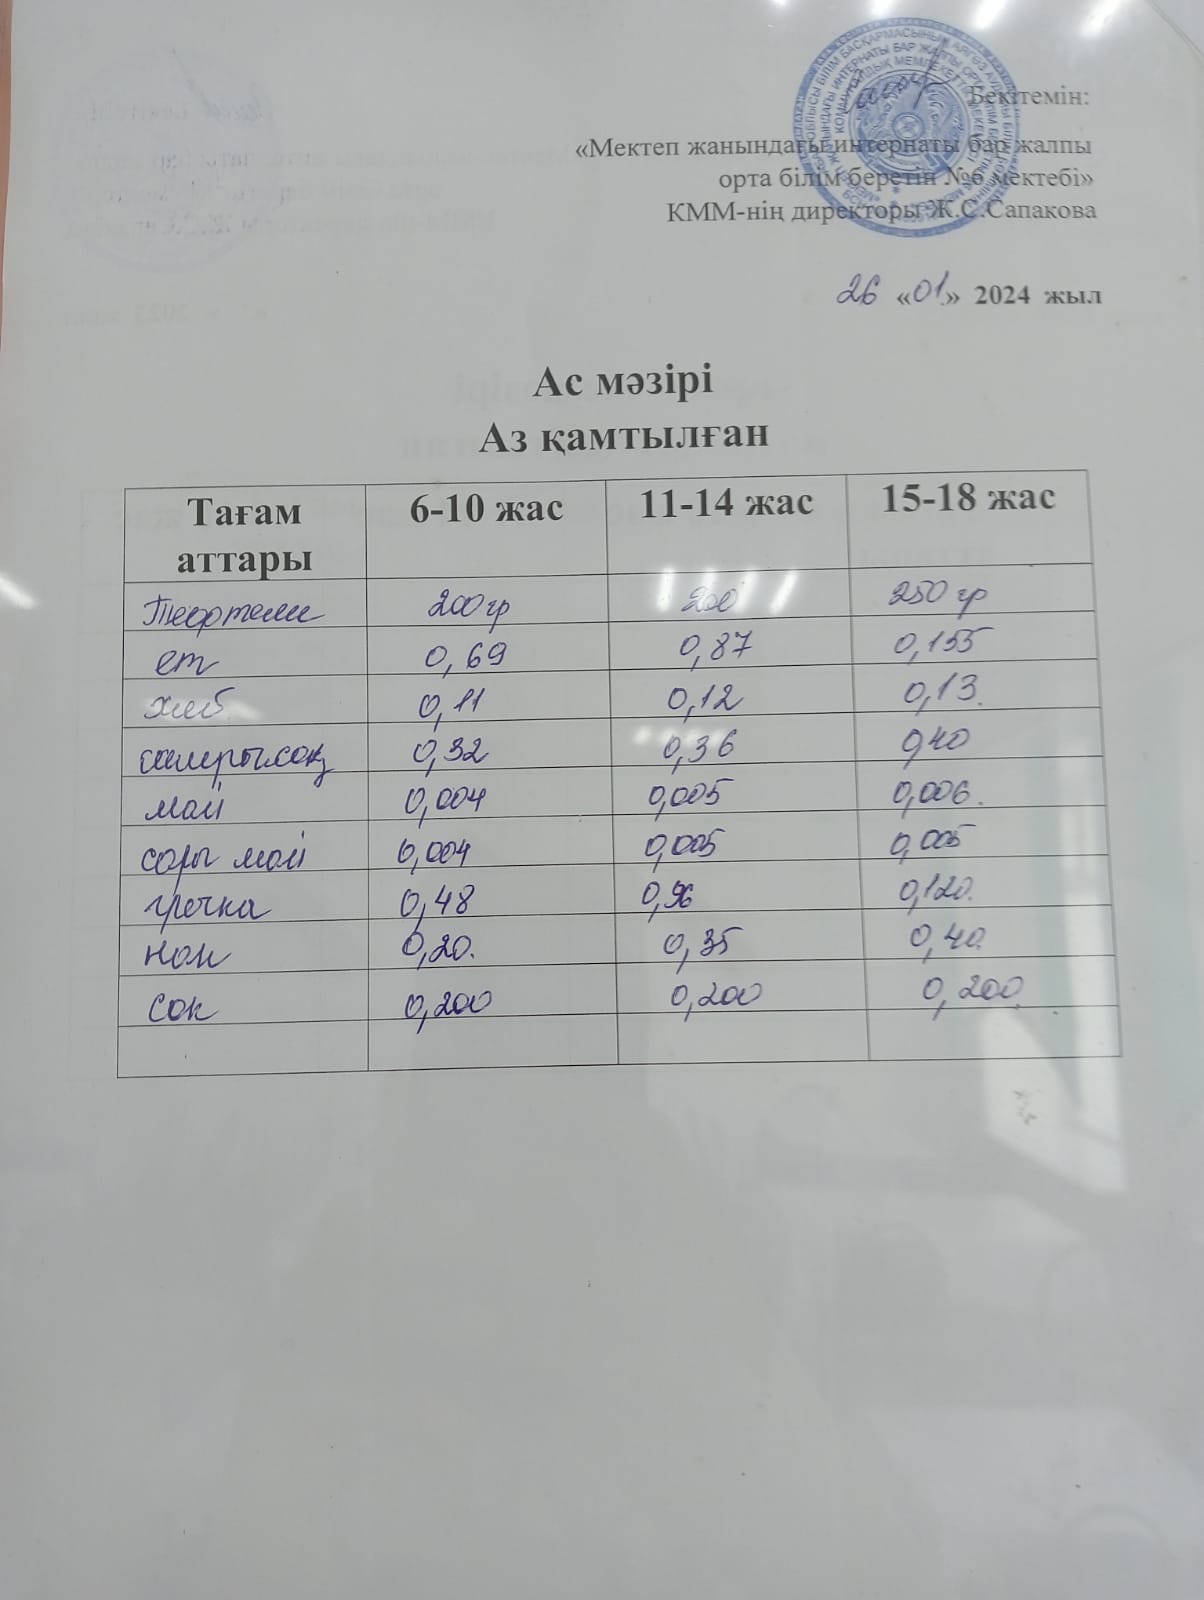 Бекітемін:
«Мектеп жанындағы интернаты бар жалпы
орта білім беретін №6 мектебі»
КММ-нің директоры Ж.С.Сапакова
26 «01» 2024 жыл
Ас мәзірі
Аз қамтылған
Тағам аттары 6-10 жас 11-14 жас 15-18 жас
Тефтели 200гр 200 250 гр
ет 0,69 0,87 0,155
хлеб 0,11 0,12 0,13.
0,32 0,36 0,40
май 0,004 0,005 0,006.
сары май 0,004 0,005 0,005
гречка 0,48 0,96 0,120.
нан 0,20. 0,35 0,40.
сок 0,200 0,200 0,200